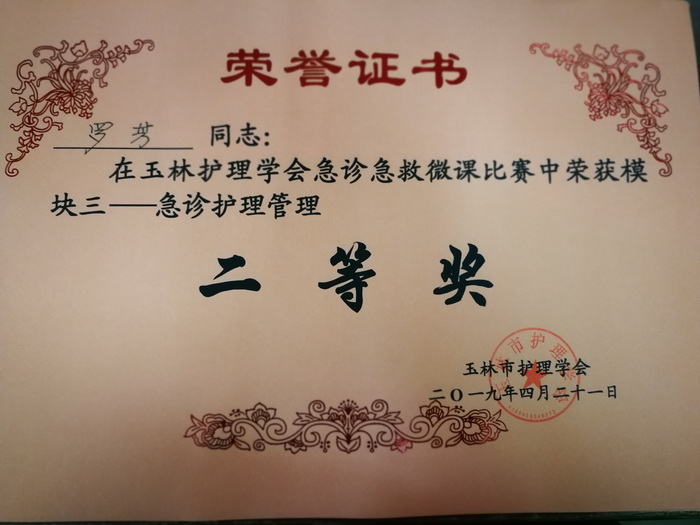 荣誉证书
罗芳 同志：
在玉林护理学会急诊急救微课比赛中荣获模
块三——急诊护理管理
二等奖
玉林市护理学会
二〇一九年四月二十一日